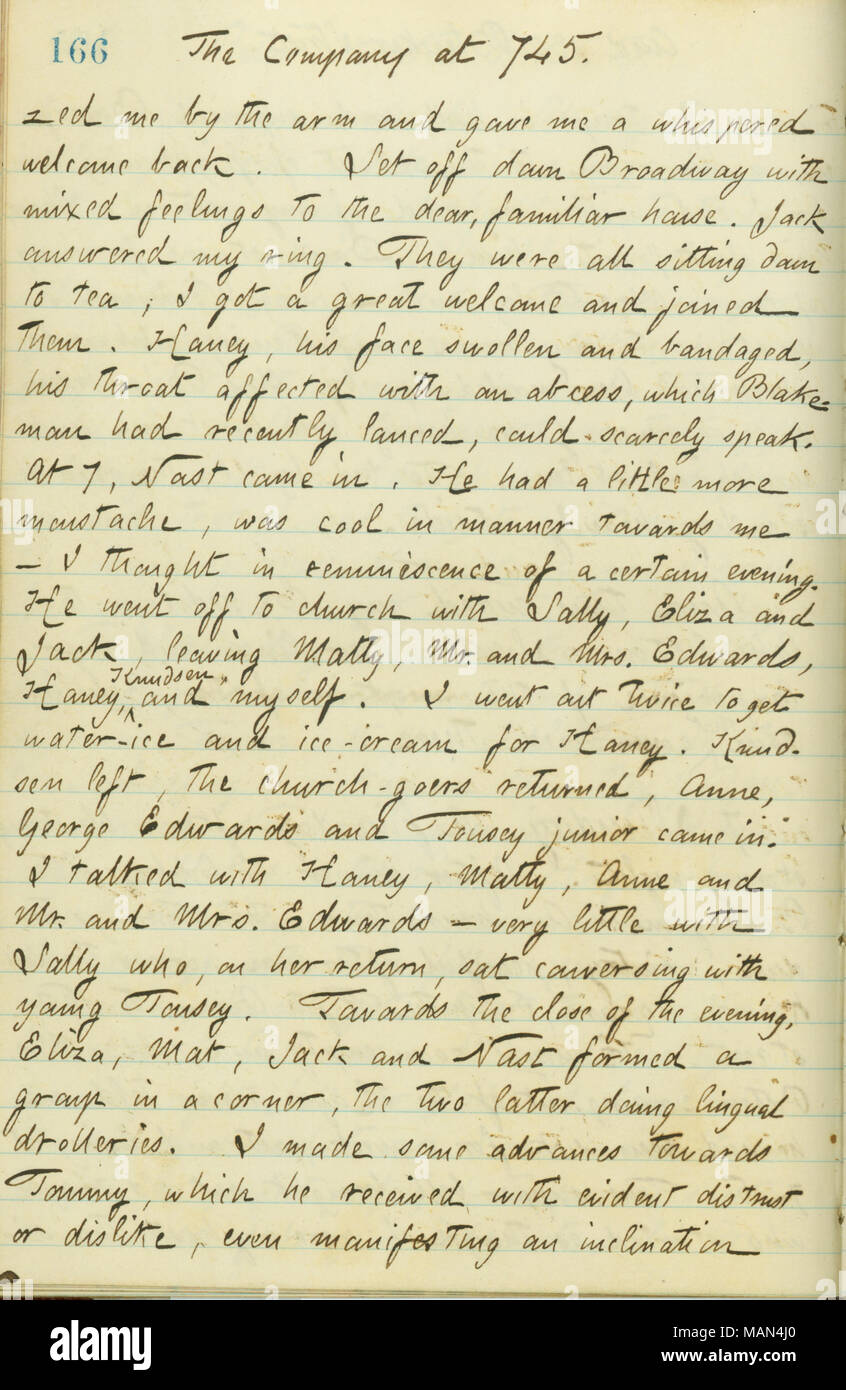 166 The Company at 745.
zed me by the arm and gave me a whispered
welcome back. Set off down Broadway with
mixed feelings to the dear, familiar house. Jack
answered my ring. They were all sitting down
to tea; I got a great welcome and joined
them. Haney, his face swollen and bandaged,
his throat affected with an abcess, which Blake=
man had recently lanced, could scarcely speak.
At 7, Nast came in. He had a little more
moustache, was cool in manner towards me
— I thought in reminiescence of a certain evening.
He went off to church with Sally, Eliza and
Jack, leaving Matty, Mr. and Mrs. Edwards,
Knudsen
Haney, and myself. I went out twice to get
water-ice and ice-cream for Haney. Knud-
sen left, the church-goers returned, Anne,
George Edwards and Tousey junior came in.
I talked with Haney, Matty, Anne and
Mr. and Mrs. Edwards — very little with
Sally who, on her return, sat conversing with
young Tousey. Towards the close of the evening,
Eliza, Mat, Jack and Nast formed a
group in a corner, the two latter doing lingual
drolleries. I made some advances towards
Tommy, which he received with evident distrust
or dislike, even manifesting an inclination
alamy
Image ID: MAN4J0
www.alamy.com